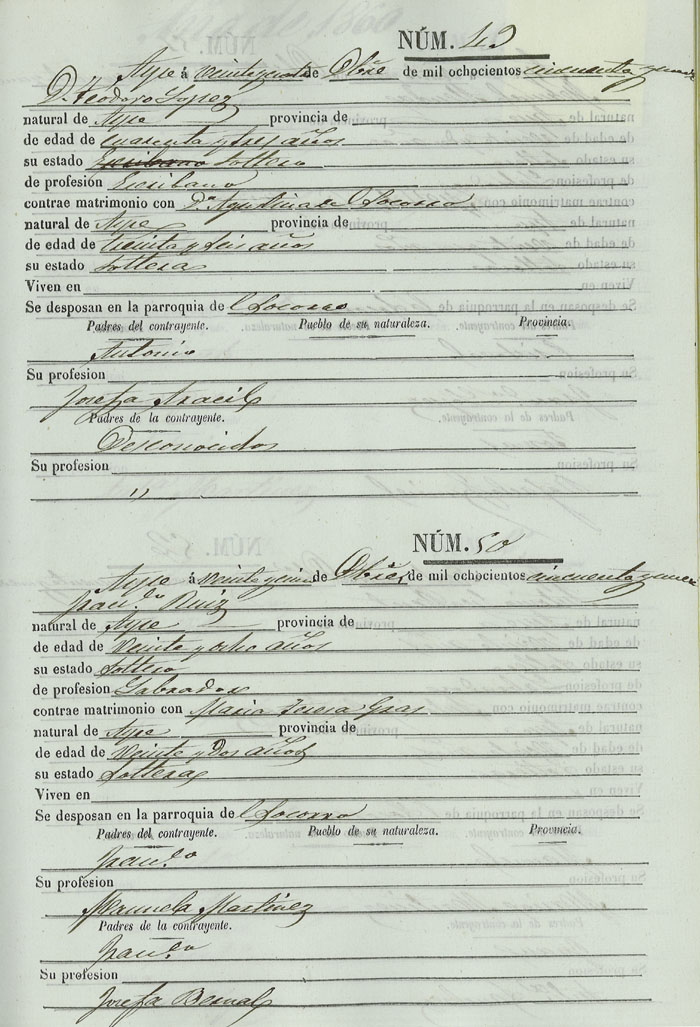 NÚM. 49
Aspe á veintiquatro de Obre de mil ochocientos cincuenta y nueve
Dn. Teodoro Lopez
natural de Aspe provincia de
de edad de cuarenta y tres años
su estado Escribano Soltero
de profesión Escribano
contrae matrimonio con Da. Agustina del Socorro
natural de Aspe provincia de
de edad de treinta y seis años
su estado soltera
Viven en
Se desposan en la parroquia de l Socorro
Padres del contrayente. Pueblo de su naturaleza. Provincia.
Antonio
Su profesion
Josefa Aracil
Padres de la contrayente.
Desconocidos
Su profesion
"
NÚM. 50
Aspe á veinticinco de Obre, de mil ochocientos cincuenta y nueve
Franco. Ruiz
natural de Aspe provincia de
de edad de veinte y ocho años
su estado soltero
de profesión Labrador
contrae matrimonio con Maria Teresa Gras
natural de Aspe provincia de
de edad de veinte y dos años
su estado solteras
Viven en
Se desposan en la parroquia de l Socorro
Padres del contrayente. Pueblo de su naturaleza. Provincia.
Franco.
Su profesion
Manuela Martinez
Padres de la contrayente.
Franco.
Su profesion
Josefa Bernal